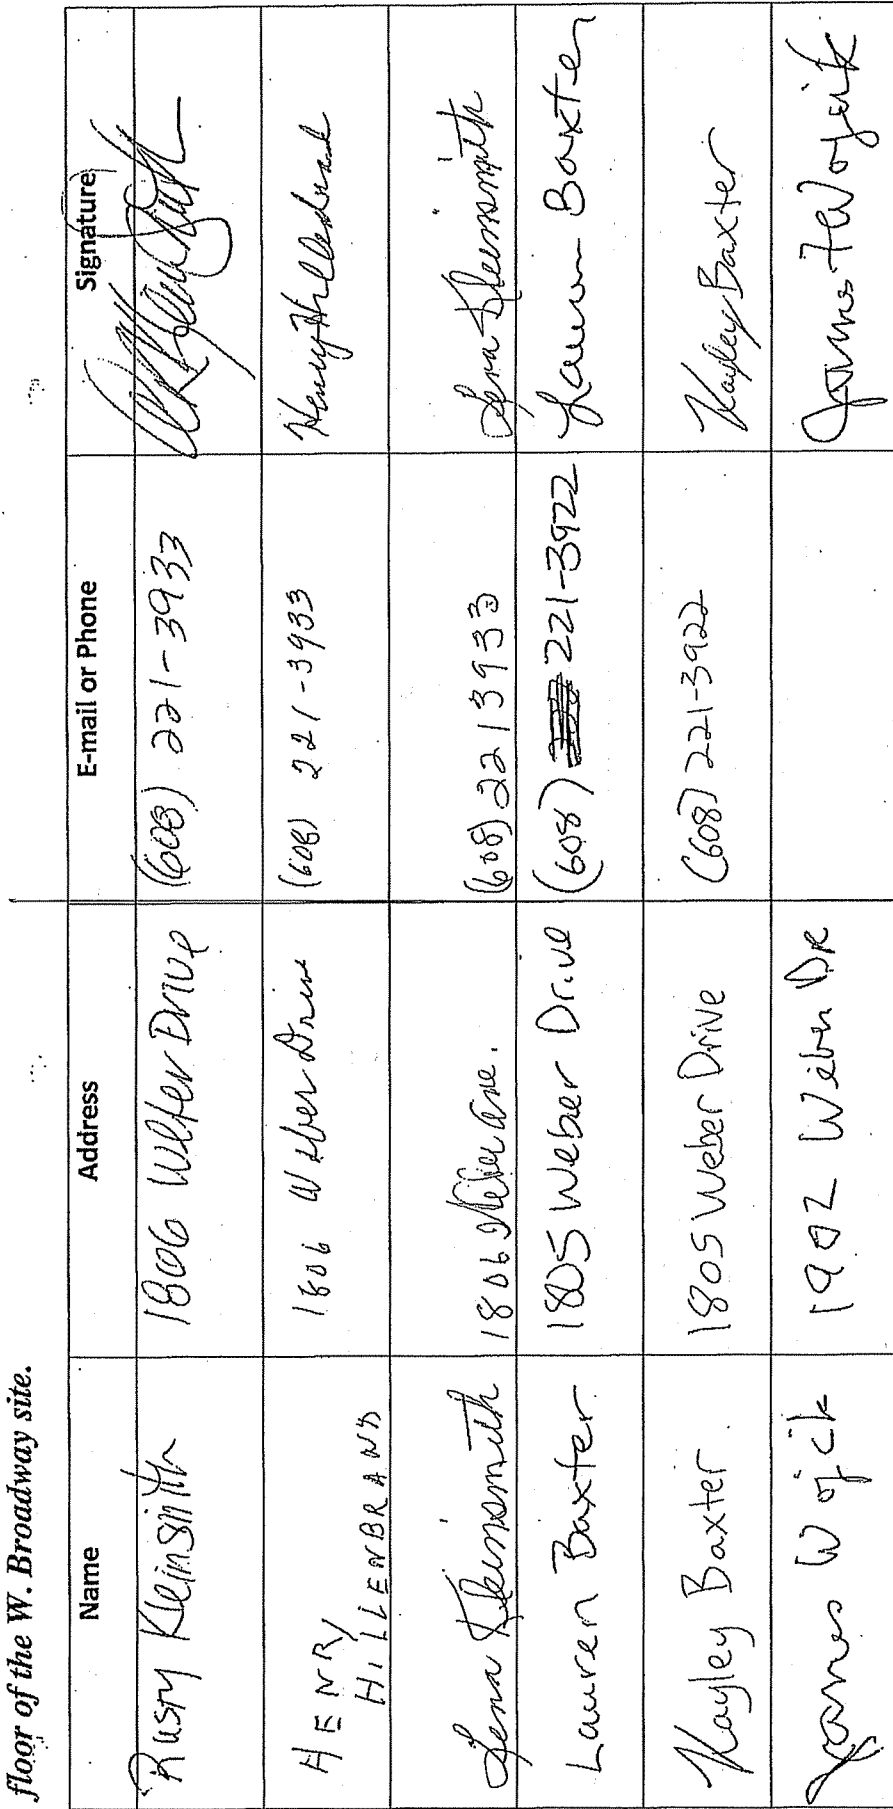 floor of the W. Broadway site.
Name Address E-mail or Phone Signature
Rusty Kleinsmith 1806 Weber Drive (608) 221-3933
HENRY HILLENBRAND 1806 Weber Drive (608) 221-3933 Henry Hillenbrand
Lena Kleinsmith 1806 Weber Drive. (608) 2213933 Lena Kleinsmith
Lauren Baxter 1805 Weber Drive (608) 221-3922 Lauren Baxter
Kayley Baxter. 1805 Weber Drive (608) 221-3922 Kayley Baxter
James Wojcik 1902 Weber DR James Wojcik